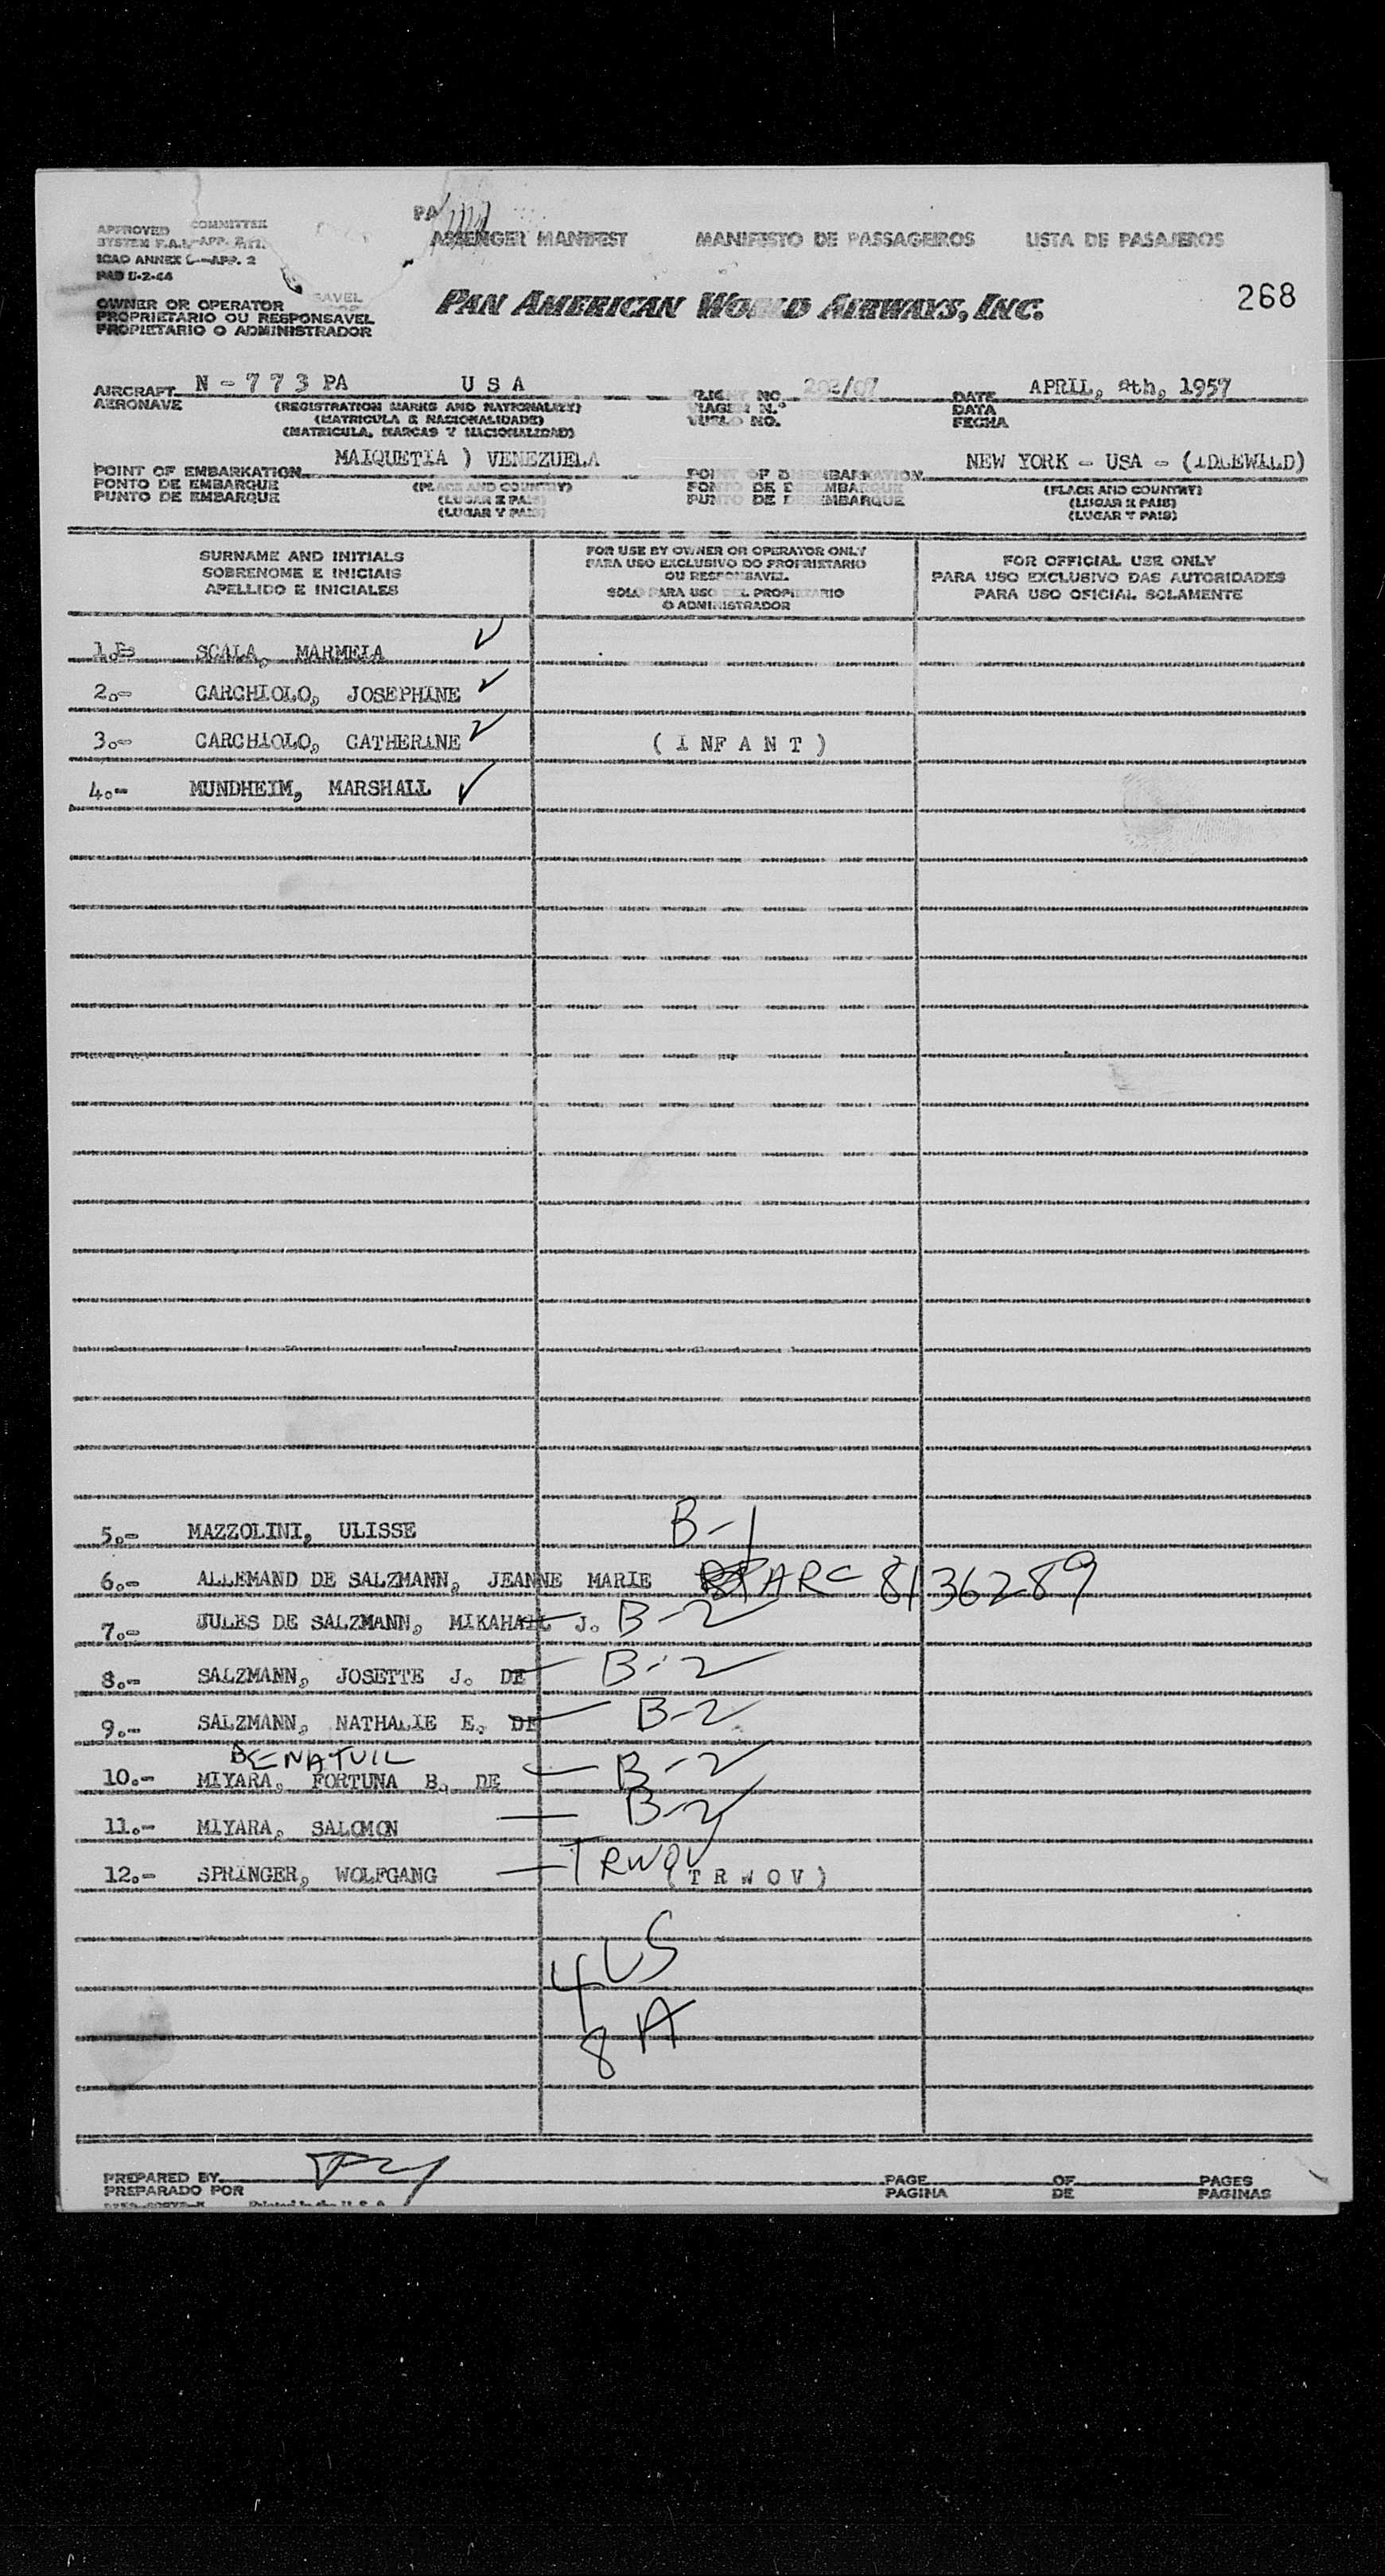 268
APPROVED COMMITTEE
SYSTEM F.A.L.-APP.
ICAO ANNEX -APP. 2
PASSENGER MANIFEST MANIFESTO DE PASSAGEIROS LISTA DE PASAJEROS
OWNER OR OPERATOR
PROPRIETARIO OU RESPONSAVEL
PROPIETARIO O ADMINISTRADOR
PAN AMERICAN WORLD AIRWAYS, INC.
AIRCRAFT N - 7 7 3 PA U S A FLIGHT NO DATE APRIL, 1957
AERONAVE (REGISTRATION MARKS AND NATIONALITY) VIAGEM N.º DATA
(MATRICULA E NACIONALIDADE) VUELO NO. FECHA
(MATRICULA, MARCAS Y NACIONALIDAD)
POINT OF EMBARKATION MAIQUETIA ) VENEZUELA POINT OF DISEMBARKATION NEW YORK - USA - (IDLEWILD)
PONTO DE EMBARQUE (PLACE AND COUNTRY) PONTO DE DESEMBARQUE (PLACE AND COUNTRY)
PUNTO DE EMBARQUE (LUGAR E PAIS) PUNTO DE DESEMBARQUE (LUGAR E PAIS)
(LUGAR Y PAIS) (LUGAR Y PAIS)
SURNAME AND INITIALS
SOBRENOME E INICIAIS
APELLIDO E INICIALES
FOR USE BY OWNER OR OPERATOR ONLY
PARA USO EXCLUSIVO DO PROPRIETARIO
OU RESPONSAVEL
SOLO PARA USO DEL PROPIETARIO
O ADMINISTRADOR
FOR OFFICIAL USE ONLY
PARA USO EXCLUSIVO DAS AUTORIDADES
PARA USO OFICIAL SOLAMENTE
1.- SCALA, MARMELA
2.- CARCHIOLO, JOSEPHINE
3.- CARCHIOLO, CATHERINE ( I N F A N T )
4.- MUNDHEIM, MARSHALL
5.- MAZZOLINI, ULISSE B-1
6.- ALLEMAND DE SALZMANN, JEANNE MARIE ARC 8136289
7.- JULES DE SALZMANN, MIKAHAIL J. B-2
8.- SALZMANN, JOSETTE J. DE B-2
9.- SALZMANN, NATHALIE E. DE B-2
BENATUIL
10.- MIYARA, FORTUNA B. DE B-2
11.- MIYARA, SALOMON B-2
12.- SPRINGER, WOLFGANG TRWOV ( T R W O V )
4 US
8 A
PREPARED BY PAGE OF PAGES
PREPARADO POR PAGINA DE PAGINAS
Printed in the U.S.A.